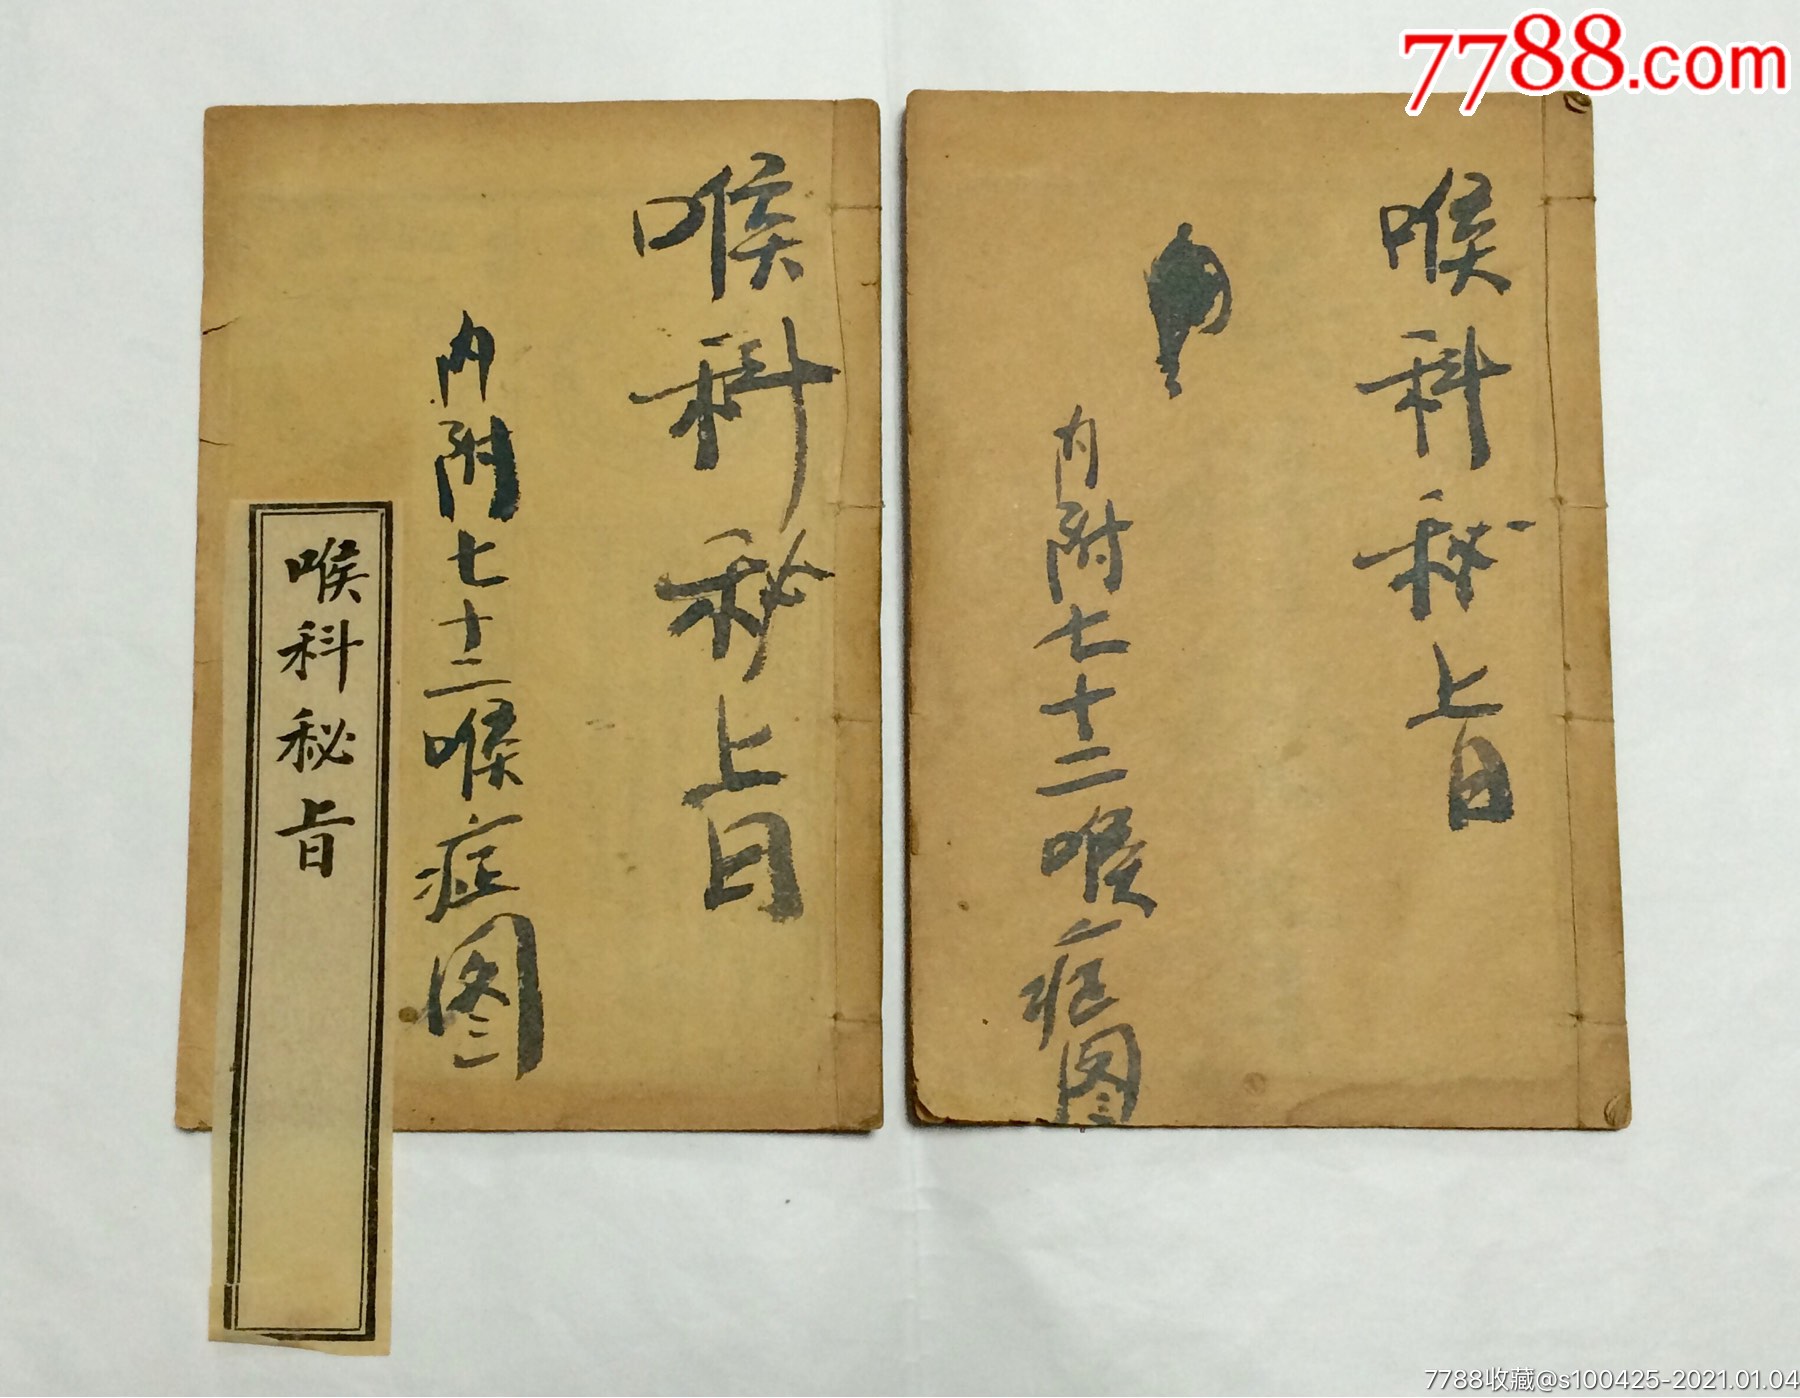 7788.com
喉科秘旨
内附七十二喉症图
喉科秘旨
内附七十二喉症图
喉科秘旨
7788收藏@s100425-2021.01.04